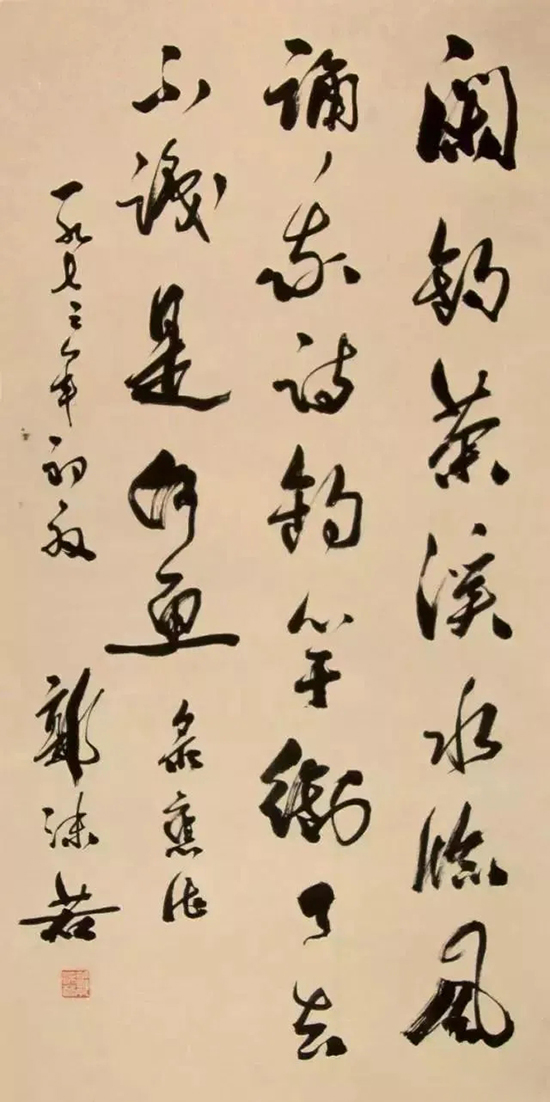 閑釣茶溪水臨風
誦我詩釣竿銜了去
不識是何魚 录舊作
一九七三年初夏 郭沫若